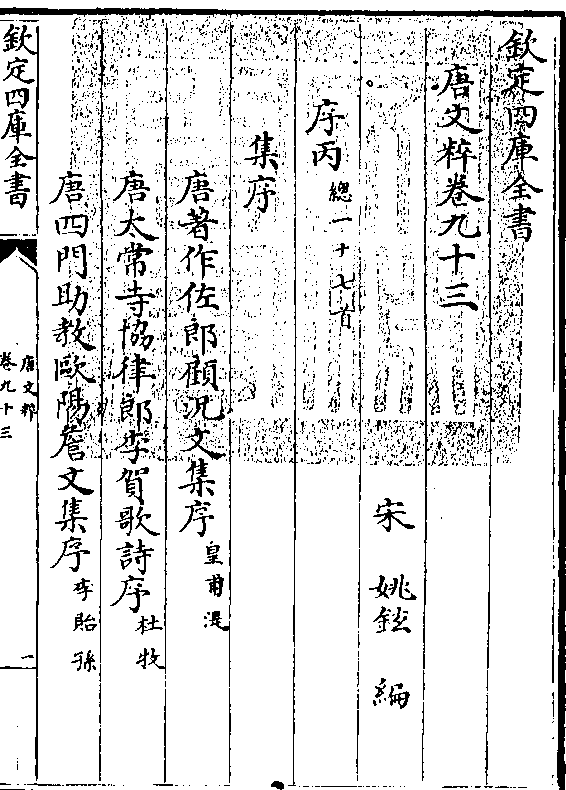 欽定四庫全書
唐文粹卷九十三
宋 姚鉉 編
序丙 總一十七首
集序
唐著作佐郎顧況文集序 皇甫湜
唐太常寺協律郎李賀歌詩序 杜牧
唐四門助教歐陽詹文集序 李貽孫
欽定四庫全書
唐文粹
卷九十三
一